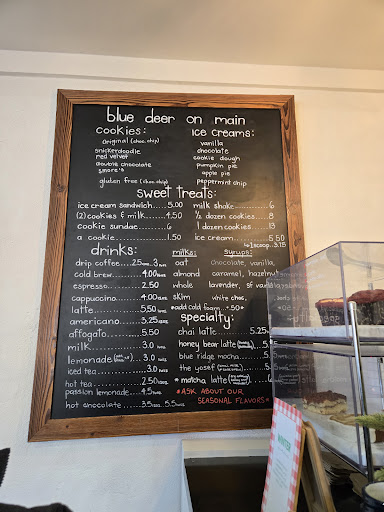 blue deer on main
cookies:
original (choc. chip)
snickerdoodle
red velvet
double chocolate
smore's
gluten free (choc. chip)
ice creams:
vanilla
chocolate
cookie dough
pumpkin pie
apple pie
peppermint chip
sweet treats:
ice cream sandwich.....5.00
(2) cookies & milk....4.50
cookie sundae.....6
a cookie.....1.50
milk shake.....6
½ dozen cookies.....8
1 dozen cookies.....13
ice cream.....5.50
1 scoop..3.15
drinks:
drip coffee....2.5 3
cold brew.....4.00
espresso.....2.50
cappuccino.....4.00
latte.....5.50
americano.....3.25
affogato.....5.50
milk.....3.0
lemonade.....3.0
iced tea.....3.0
hot tea.....2.50
passion lemonade...4.5
hot chocolate.....3.5 5.5
milks:
oat
almond
whole
skim
syrups:
chocolate, vanilla,
caramel, hazelnut
lavender, sf vanilla
white choc.
*add cold foam +.50*
specialty:
chai latte.....5.25
honey bear latte
blue ridge mocha.....5.
the yosef
*matcha latte
*ASK ABOUT OUR
SEASONAL FLAVORS*
WINTER